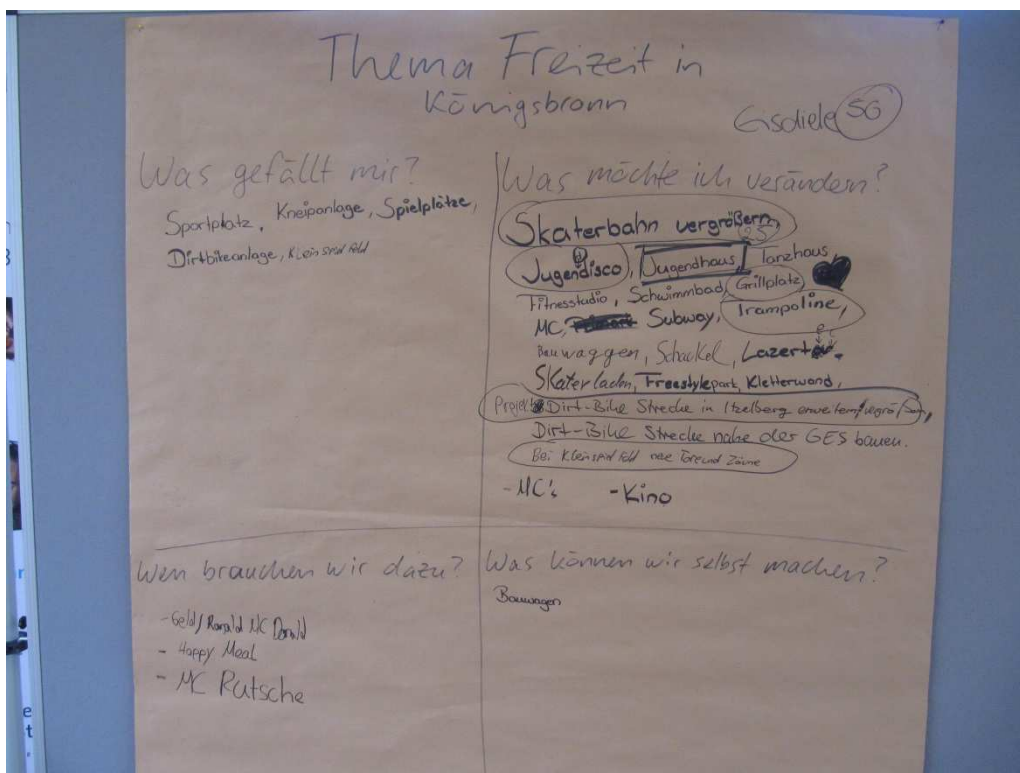 Thema Freizeit in
Königsbronn
Eisdiele 50
Was gefällt mir?
Sportplatz, Kneipanlage, Spielplätze,
Dirtbikeanlage, Kleinspielfeld
Was möchte ich verändern?
Skaterbahn vergrößern,
Jugendisco, Jugendhaus, Tanzhaus,
Fitnesstudio, Schwimmbad, Grillplatz,
MC, Subway, Trampoline,
Bauwaggen, Schackel, Lazert
Skaterladn, Freestylepark, Kletterwand,
Projekt Dirt-Bike Strecke in Itzelberg erweitern/vegrößern,
Dirt-Bike Strecke nahe der GES bauen.
Bei Kleinspielfeld neue Tore und Zäune
- MC's - Kino
Wen brauchen wir dazu?
- Geld/Ronald MC Donald
- Happy Meal
- MC Rutsche
Was können wir selbst machen?
Bauwagen